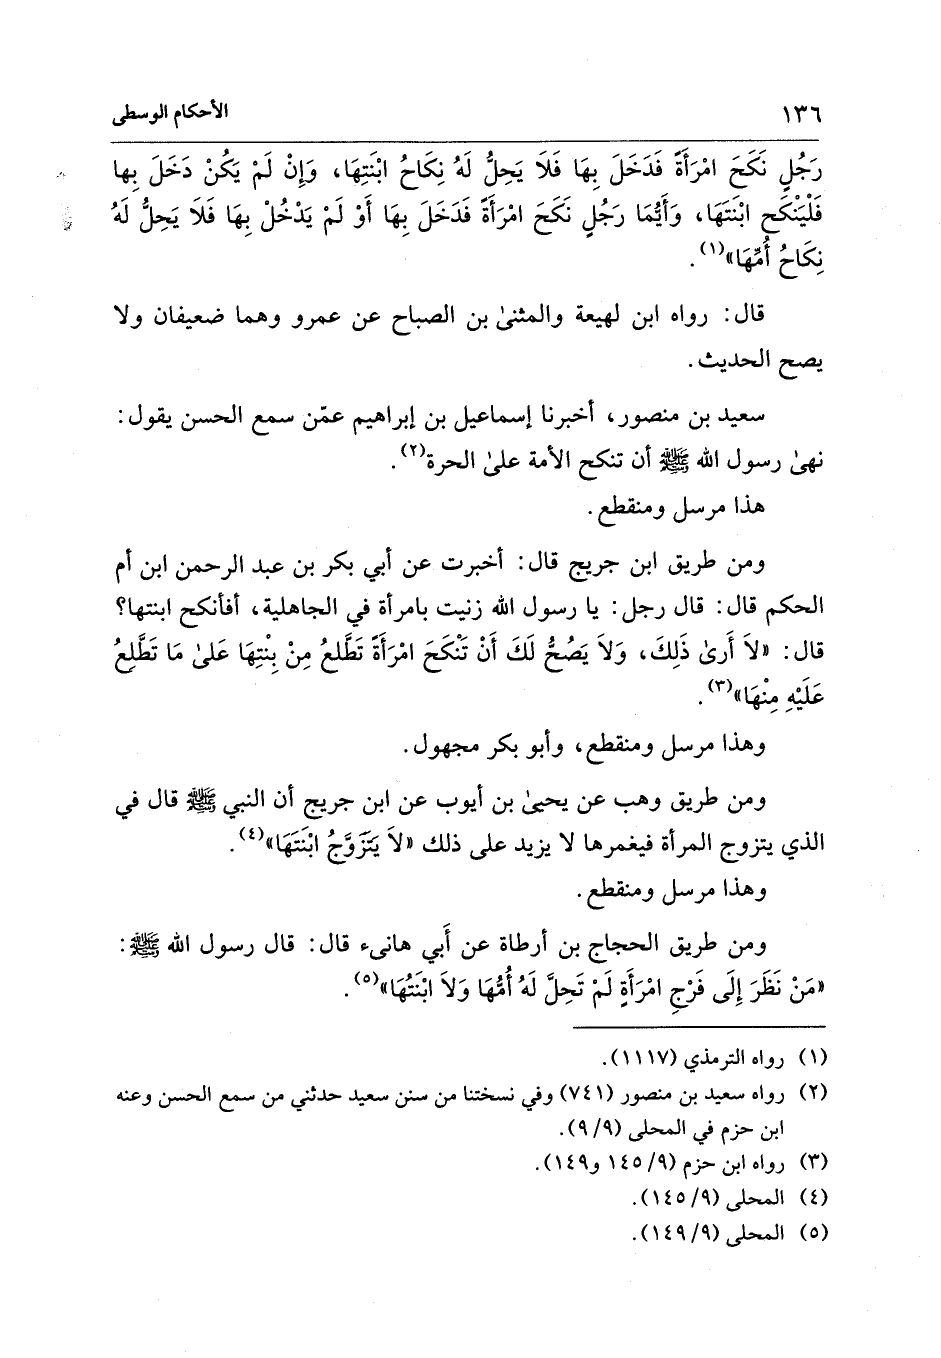 ١٣٦ الأحكام الوسطى
رَجُلٍ نَكَحَ امْرَأَةً فَدَخَلَ بِهَا فَلَا يَحِلُّ لَهُ نِكَاحُ ابْنَتِهَا، وَإِنْ لَمْ يَكُنْ دَخَلَ بِها
فَلْيَنْكَحِ ابْنَتَهَا، وَأَيُّمَا رَجُلٍ نَكَحَ امْرَأَةً فَدَخَلَ بِهَا أَوْ لَمْ يَدْخُلْ بِهَا فَلَا يَحِلُّ لَهُ
نِكَاحُ أُمِّهَا»(١).
قال: رواه ابن لهيعة والمثنىٰ بن الصباح عن عمرو وهما ضعيفان ولا
يصح الحديث.
سعيد بن منصور، أخبرنا إسماعيل بن إبراهيم عمّن سمع الحسن يقول:
نهىٰ رسول الله ﷺ أن تنكح الأمة علىٰ الحرة(٢).
هذا مرسل ومنقطع.
ومن طريق ابن جريج قال: أخبرت عن أبي بكر بن عبد الرحمن ابن أم
الحكم قال: قال رجل: يا رسول الله زنيت بامرأة في الجاهلية، أفأنكح ابنتها؟
قال: «لاَ أَرىٰ ذَلِكَ، وَلاَ يَصُحُّ لَكَ أَنْ تَنْكَحَ امْرَأَةً تَطَّلعُ مِنْ بِنْتِهَا عَلىٰ مَا تَطَّلِعُ
عَلَيْهِ مِنْهَا»(٣).
وهذا مرسل ومنقطع، وأبو بكر مجهول.
ومن طريق وهب عن يحيىٰ بن أيوب عن ابن جريج أن النبي ﷺ قال في
الذي يتزوج المرأة فيغمرها لا يزيد على ذلك «لاَ يَتَزَوَّجُ ابْنَتَهَا»(٤).
وهذا مرسل ومنقطع.
ومن طريق الحجاج بن أرطاة عن أَبي هانىء قال: قال رسول الله ﷺ:
«مَنْ نَظَرَ إِلَى فَرْجِ امْرَأَةٍ لَمْ تَحِلَّ لَهُ أُمُّهَا وَلاَ ابْنَتُهَا»(٥).
(١) رواه الترمذي (١١١٧).
(٢) رواه سعيد بن منصور (٧٤١) وفي نسختنا من سنن سعيد حدثني من سمع الحسن وعنه
ابن حزم في المحلى (٩/٩).
(٣) رواه ابن حزم (٩/ ١٤٥ و١٤٩).
(٤) المحلى (٩/ ١٤٥).
(٥) المحلى (٩/ ١٤٩).